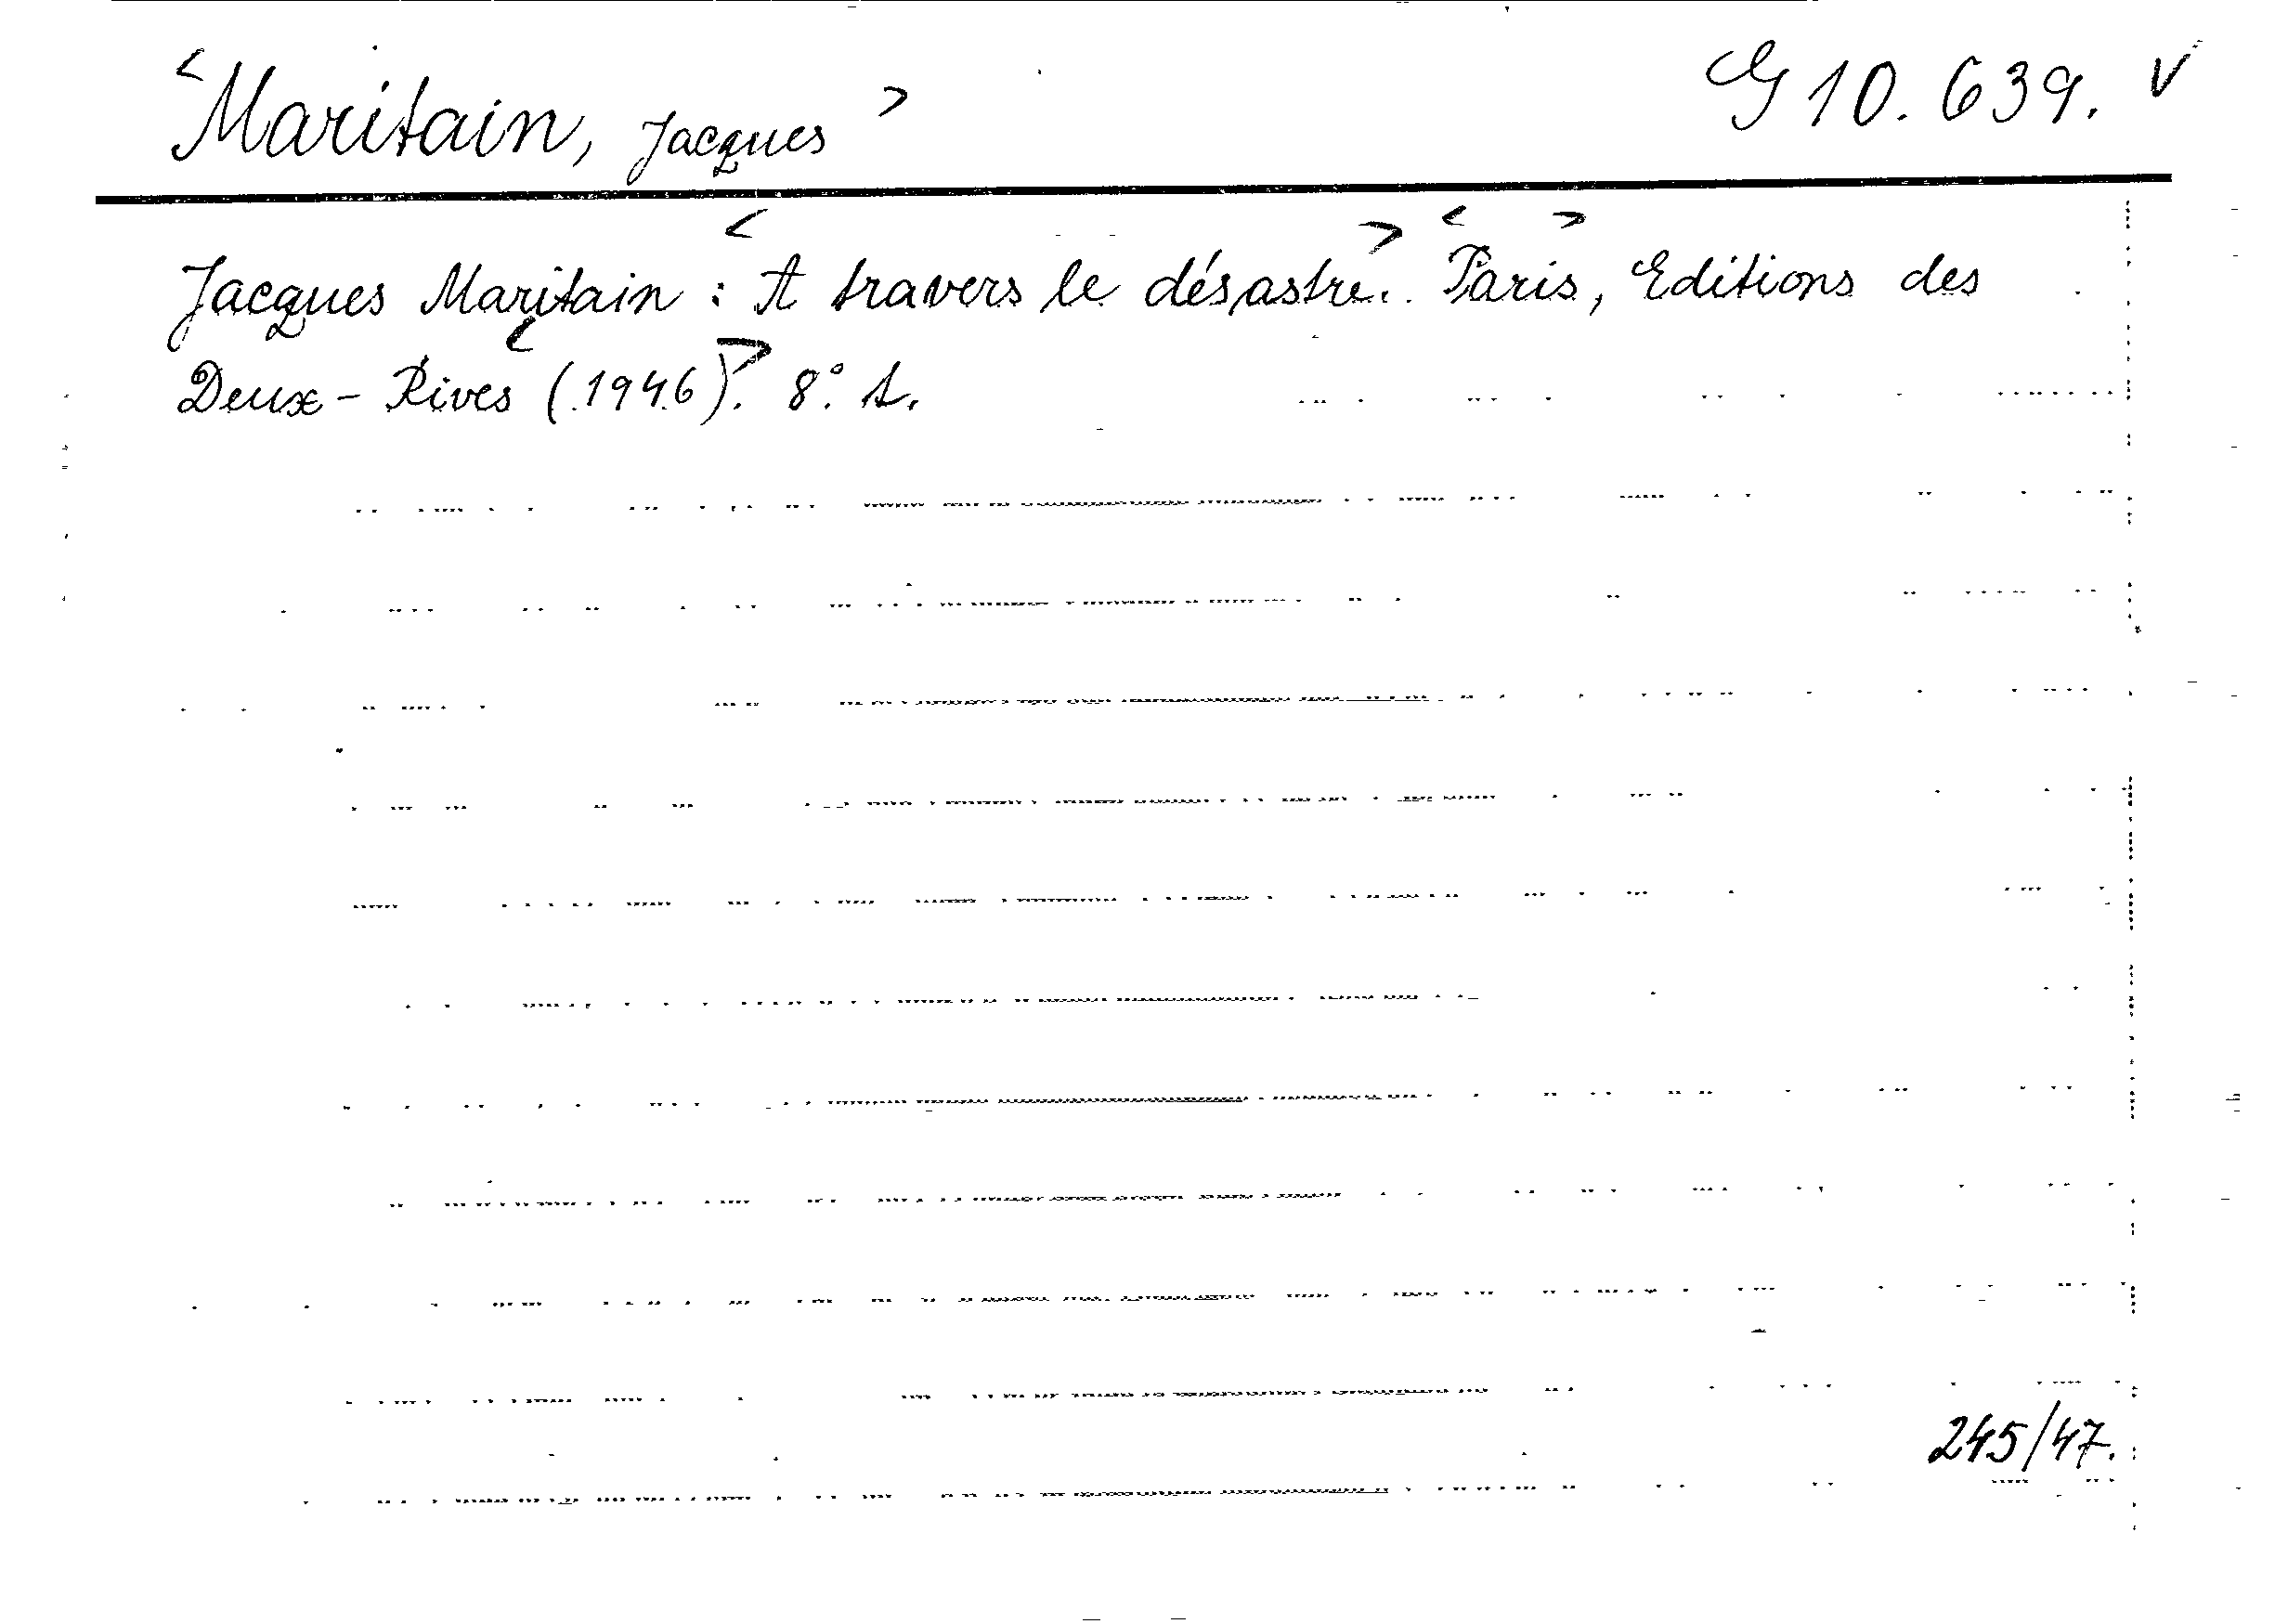 <Maritain, Jacques> G 10.639. v
Jacques Maritain : <A travers le désastre.> <Paris>, Editions des
Deux-Rives <(1946)>. 8° s.
245/47.